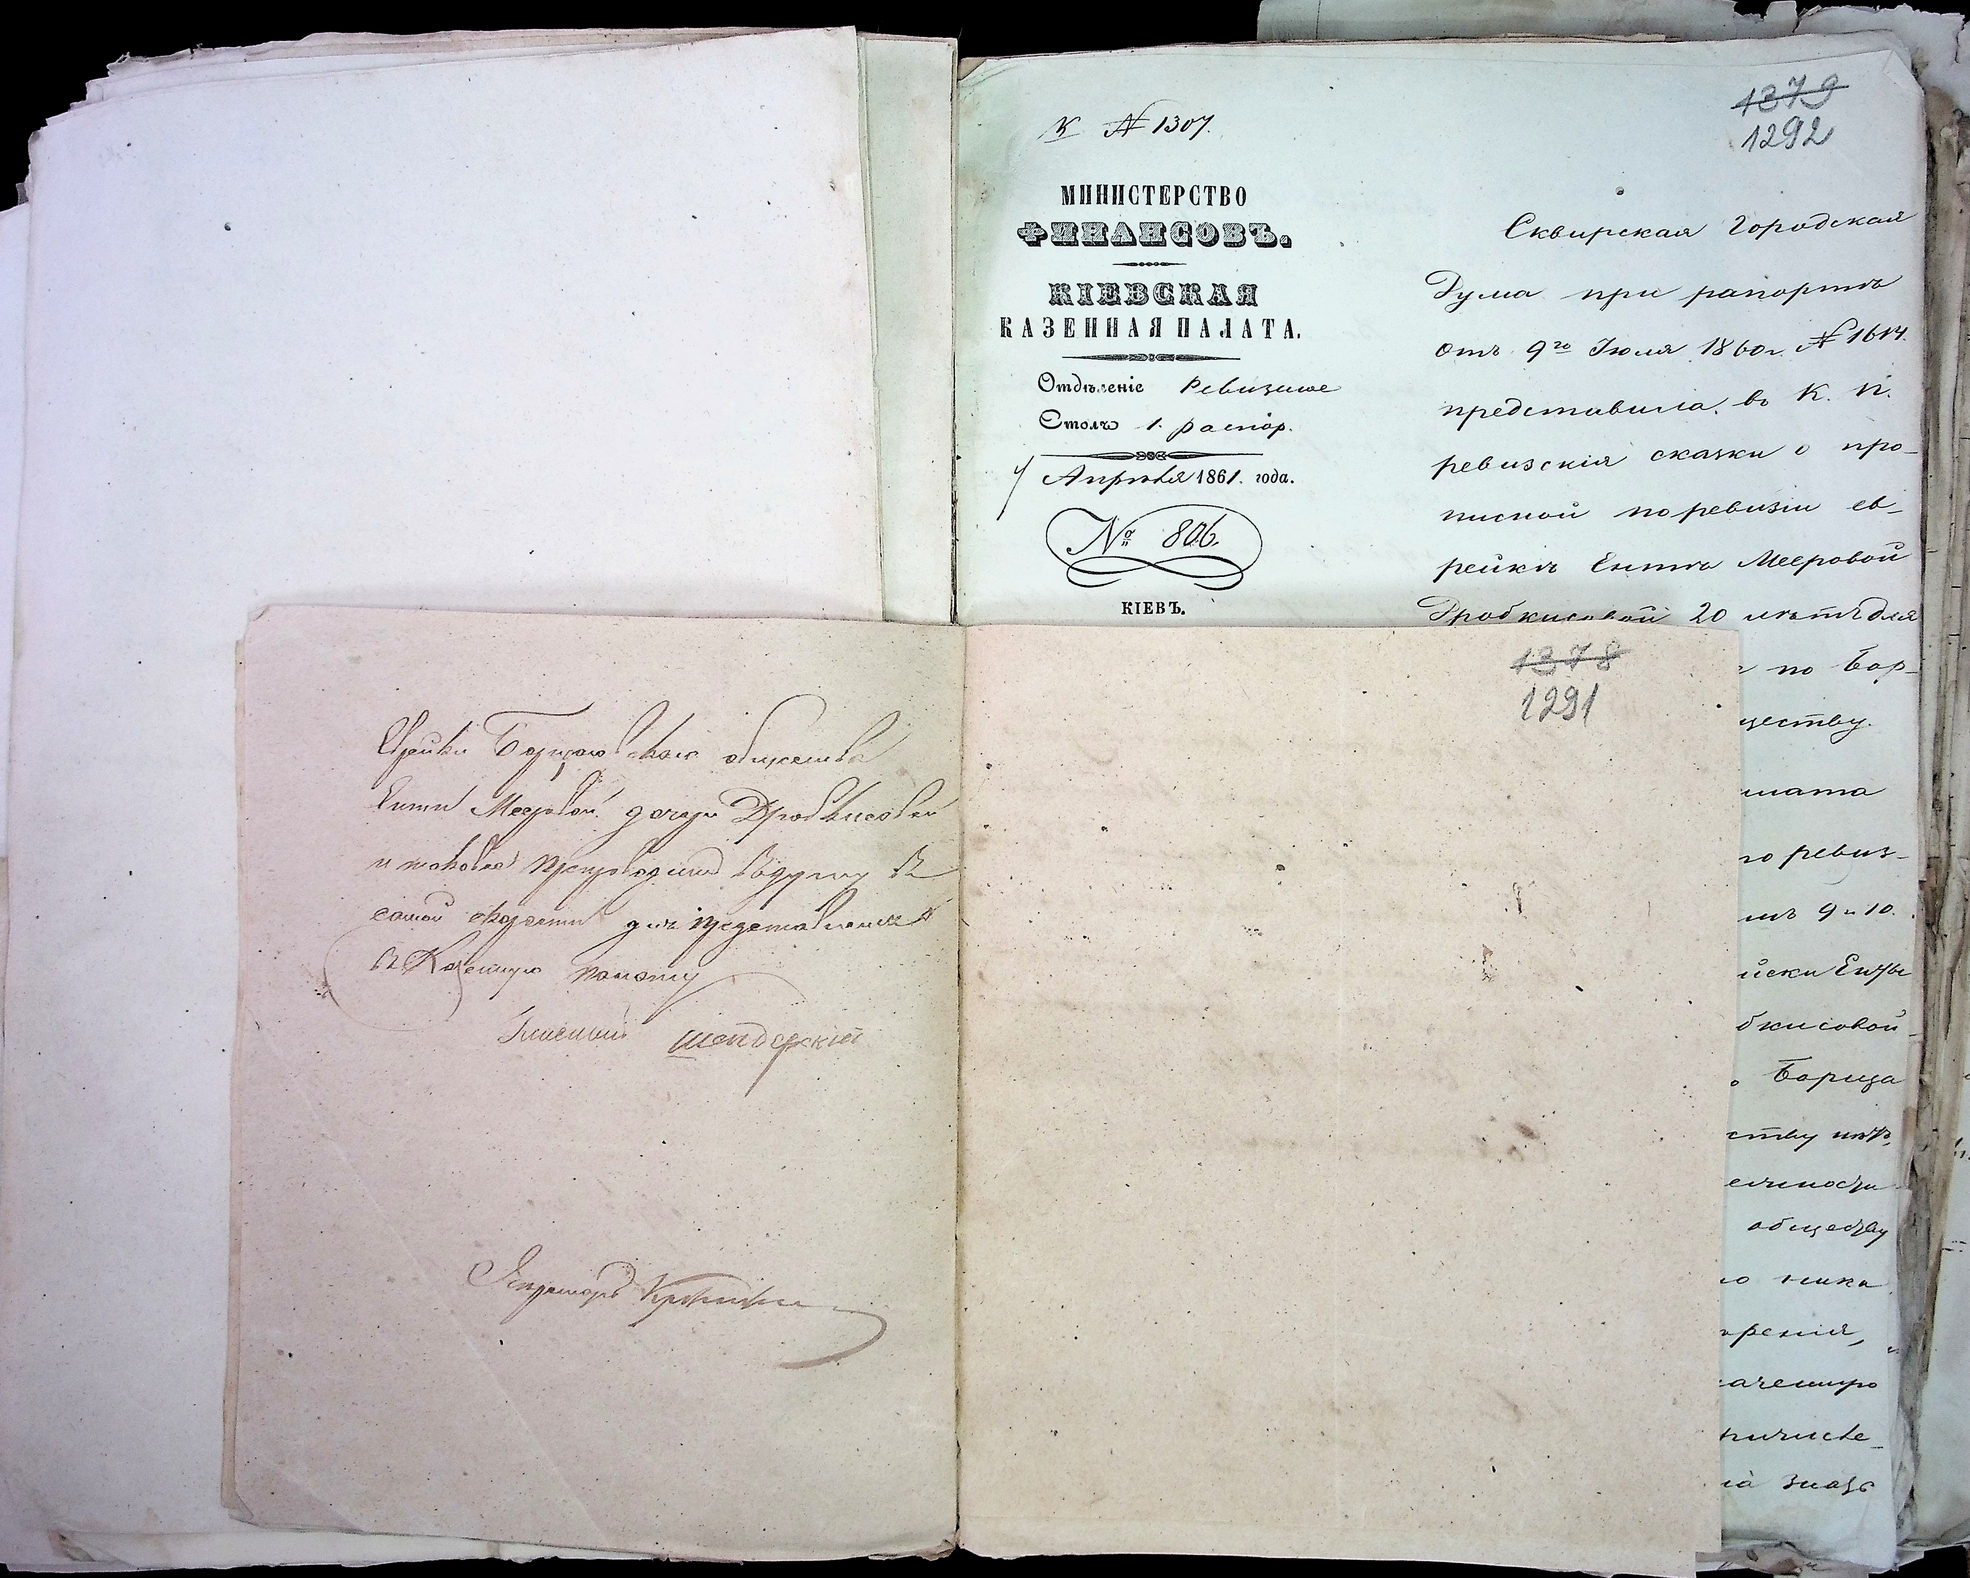 К № 1307.
1379
1292
МИНИСТЕРСТВО
ФИНАНСОВЪ.
КІЕВСКАЯ
КАЗЕННАЯ ПАЛАТА.
Отдѣленіе Ревизское
Столъ 1. распор.
4 Апрѣля 1861. года.
№ 806.
КІЕВЪ.
Сквирская Городская
Дума при рапортѣ
отъ 9го Іюля 1860г. № 1614.
представила въ К. П.
ревизскія сказки о про-
писной по ревизіи ев-
рейкѣ Ентѣ Мееровой
Дробкисовой 20 лѣтъ для
по Бор-
ществу.
лата
ревиз-
9 и 10.
Енты
бкисовой
Борща
ству
обществу
ренія,
причисле
знать
1378
1291
Еврейки Борщаговскаго общества
Енты Мееровой дочери Дробкисовой
и таковые препроводить в Думу в
самой скорости для представленія
в Казенную палату
Гласный Шендерскій